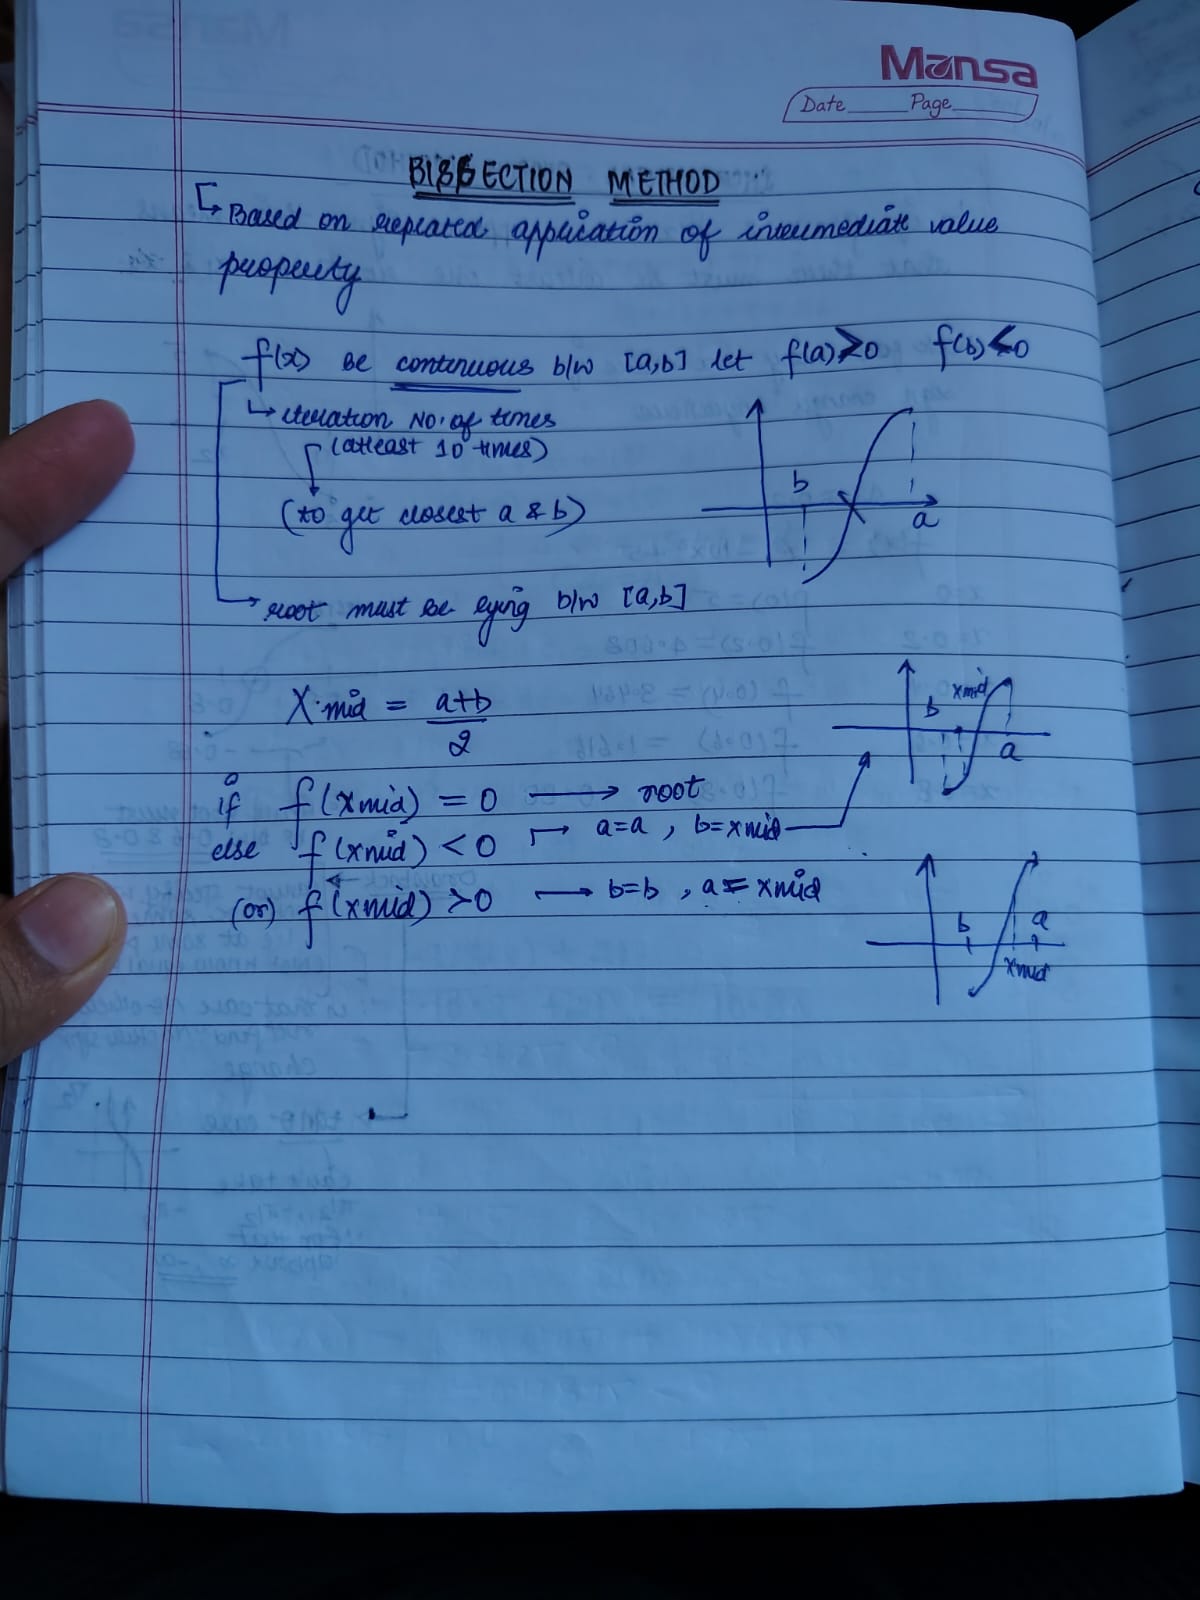 Mansa
Date Page
BISECTION METHOD
Based on repeated application of intermediate value
property
f(x) be continuous b/w [a,b] let f(a)>0 f(b)<0
iteration No. of times
(atleast 10 times)
(to get closest a & b)
b
a
root must be lying b/w [a,b]
X mid = a+b
2
xmid
b
a
if f(xmid) = 0 → root
else f(xmid) < 0 → a=a, b=xmid
(or) f(xmid) >0 → b=b, a=xmid
b a
xmid